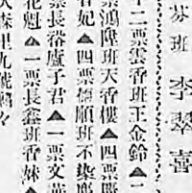 芬班 李琴喜
十二票雲香班王金鈴▲二
票鴻陞班天香樓▲四票
香妃▲四票德順班不染塵
票長裕盧子君▲一票文
花魁▲一票長鑫班香妹▲
森里九號